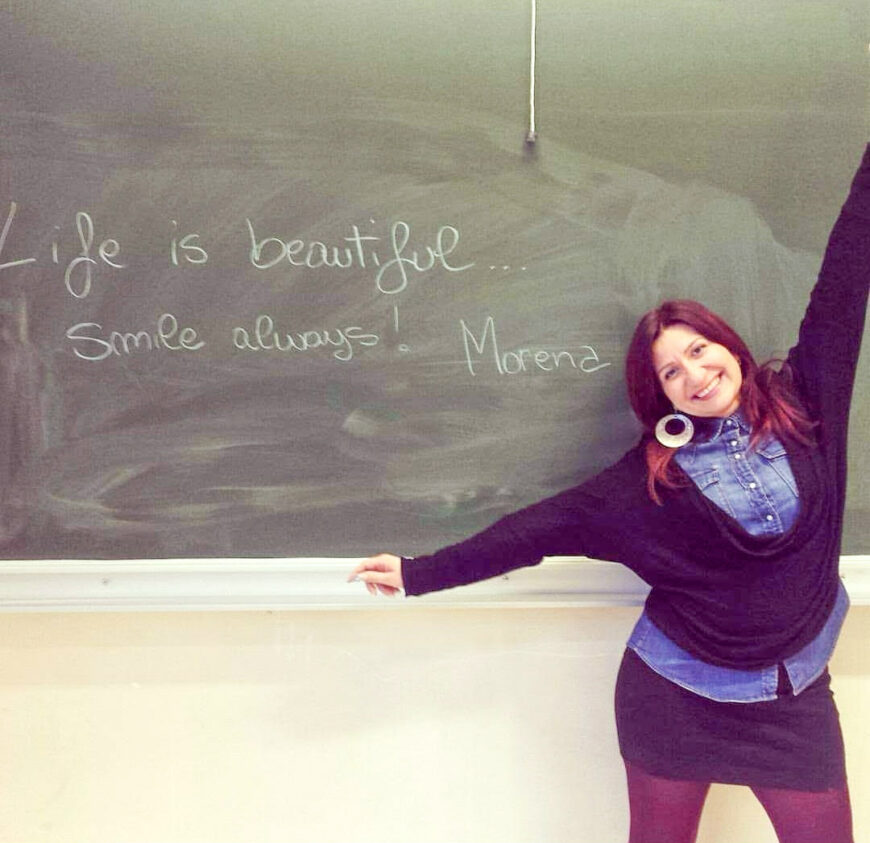 Life is beautiful...
Smile always! Morena